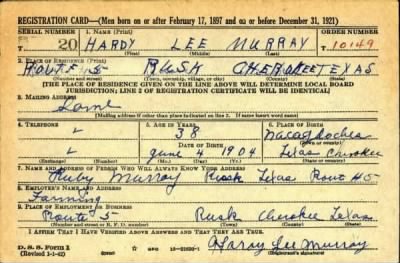 REGISTRATION CARD—(Men born on or after February 17, 1897 and on or before December 31, 1921)
SERIAL NUMBER 1. NAME (Print) ORDER NUMBER
T 20 HARDY LEE MURRAY 10149
(First) (Middle) (Last)
2. PLACE OF RESIDENCE (Print)
ROUTE 5 RUSK CHEROKEE TEXAS
(Number and street) (Town, township, village, or city) (County) (State)
[THE PLACE OF RESIDENCE GIVEN ON THE LINE ABOVE WILL DETERMINE LOCAL BOARD
JURISDICTION; LINE 2 OF REGISTRATION CERTIFICATE WILL BE IDENTICAL]
3. MAILING ADDRESS
Same
[Mailing address if other than place indicated on line 2. If same insert word same]
4. TELEPHONE 5. AGE IN YEARS 6. PLACE OF BIRTH
38 Nacogdoches
DATE OF BIRTH (Town or county)
June 4 1904 Texas Cherokee
(Exchange) (Number) (Mo.) (Day) (Yr.) (State or country)
7. NAME AND ADDRESS OF PERSON WHO WILL ALWAYS KNOW YOUR ADDRESS
Ruby Murray Rusk Texas Rout #5
8. EMPLOYER'S NAME AND ADDRESS
Farming
9. PLACE OF EMPLOYMENT OR BUSINESS
Route 5 Rusk Cherokee Texas
(Number and street or R. F. D. number) (Town) (County) (State)
I AFFIRM THAT I HAVE VERIFIED ABOVE ANSWERS AND THAT THEY ARE TRUE.
D. S. S. Form 1
(Revised 1-1-42) GPO Hardy Lee Murray
(Registrant's signature)